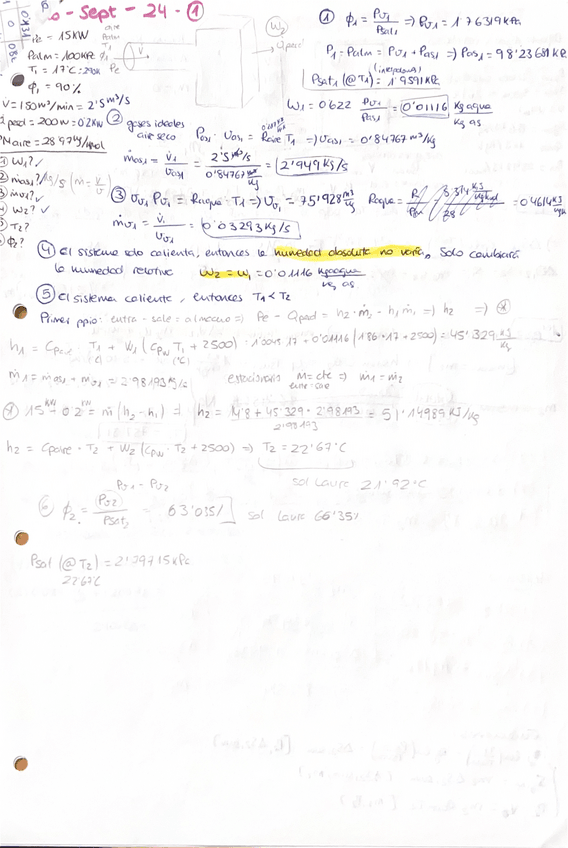 o - Sept - 24 - ①
Pe = 15KW
Palm = 100KPa
T1 = 17°C = 290K
φ1 = 90%
V = 150 m³/min = 2'5 m³/s
Qperd = 200w = 0'2KW
Maire = 28'97
W1? ✓
W2? ✓
T2?
φ2?
aire
Palm
T1
φ1
V
Pe
W2
Qperd
① φ1 = Pv1/Psat1 => Pv1 = 1'76319 KPa
P1 = Palm = Pv1 + Pas1 => Pas1 = 98'23681 KPa
(interpolando)
Psat1 (@T1) = 1'9591 KPa
W1 = 0'622 Pv1/Pas1 = 0'01116 Kg agua/Kg as
② gases ideales
aire seco
Pas1 · vas1 = Raire T1 => vas1 = 0'84767 m³/Kg
ṁas1 = V̇1/vas1 = 2'5 m³/s / 0'84767 m³/kg = 2'949 Kg/s
③ vv1 Pv1 = Ragua · T1 => vv1 = 75'928 m³/Kg Ragua = 0'4614
ṁv1 = V̇1/vv1 = 0'03293 Kg/s
④ El sistema solo calienta, entonces la humedad absoluta no varía, Solo cambiará
la humedad relativa W2 = W1 = 0'01116 Kg agua/Kg as
⑤ El sistema calienta, entonces T1 < T2
Primer ppio: entra - sale = almaceno => Pe - Qperd = h2 · ṁ2 - h1 ṁ1 => h2 => (*)
h1 = Cpaire · T1 + W1 (Cpw T1 + 2500) = 1'004 · 17 + 0'01116 (1'86 · 17 + 2500) = 45'329 KJ/Kg
ṁ1 = ṁas1 + ṁv1 = 2'98193 Kg/s estacionario M = cte => ṁ1 = ṁ2
(*) 15 KW - 0'2 KW = ṁ (h2 - h1) => h2 = 14'8 + 45'329 · 2'98193 / 2'98193 = 50'14989 KJ/Kg
h2 = Cpaire · T2 + W2 (Cpw · T2 + 2500) => T2 = 22'67°C
sol Laure 21'92°C
Pv1 = Pv2
⑥ φ2 = Pv2/Psat2 = 63'035% sol Laure 66'35%
Psat (@T2) = 2'79715 KPa
22'67°C